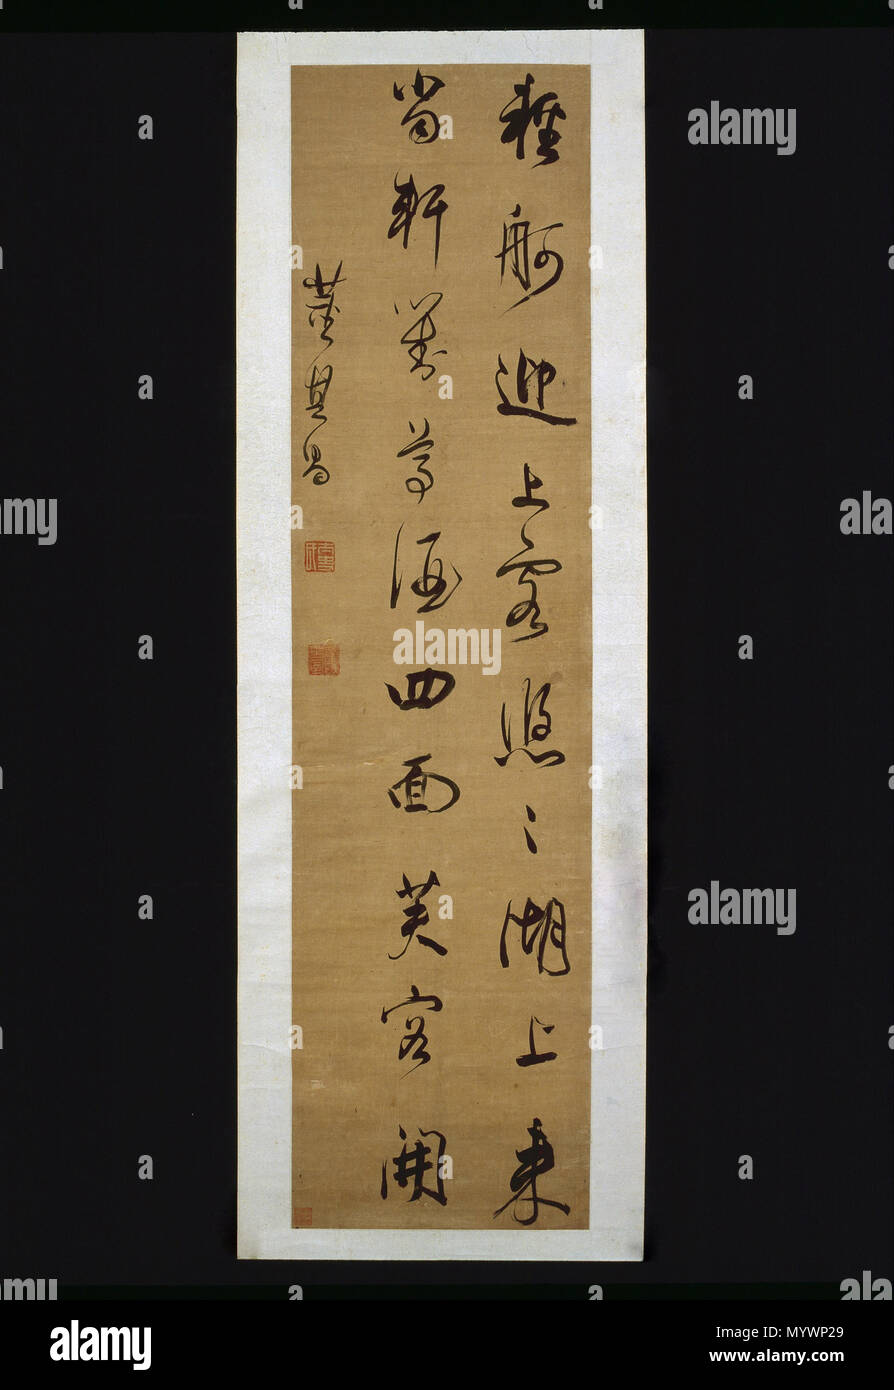 輕舸迎上客悠〻湖上來
當軒對尊酒四面芙容開
董其昌
alamy
alamy
alamy
alamy
alamy
alamy
Image ID: MYWP29
www.alamy.com